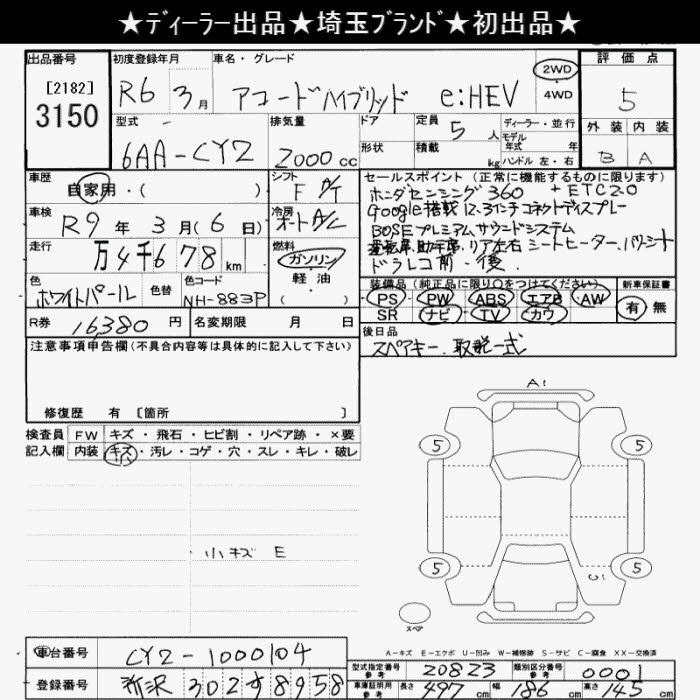 ★ディーラー出品★埼玉ブランド★初出品★
出品番号
[2182]
3150
初度登録年月
R6年 3月
車名・グレード
アコードハイブリッド e:HEV
2WD
4WD
評価点
5
外装 内装
B A
型式
6AA-CY2
排気量
2000cc
ドア
形状
定員
5人
積載
kg
ディーラー・並行
モデル年式 年式
ハンドル 左・右
車歴
自家用・( )
シフト
F A/T
車検
R9年3月(6日)
冷房
オートA/C
走行
万4千678km
燃料
ガソリン
軽油
( )
色
ホワイトパール
色替
色コード
NH-883P
R券
16380円
名変期限 月 日
セールスポイント(正常に機能するものに限ります)
ホンダセンシング360 + ETC2.0
Google搭載 12.3インチコネクトディスプレー
BOSEプレミアムサウンドシステム
運転席、助手席、リア左右シートヒーター、パワーシート
ドラレコ前・後.
装備品(純正品に限り○をつけてください)
PS PW ABS エアB AW
SR ナビ TV カワ
新車保証書
有 無
後日品
スペアキー、取説一式
注意事項申告欄(不具合内容等は具体的に記入して下さい)
修復歴 有 [箇所 ]
検査員
記入欄
FW キズ・飛石・ヒビ割・リペア跡・×要
内装 キズ・汚レ・コゲ・穴・スレ・キレ・破レ
小
小キズ E
A1
5
5
5
5
U1
スペア
A-キズ E-エクボ U-凹み W-補修跡 S-サビ C-腐食 XX-交換済
車台番号
CY2-1000104
登録番号
所沢 302す8958
型式指定番号
参考
20823
類別区分番号
参考
0001
車庫証明用
参考
長さ 497cm 幅 186cm 高さ 145cm